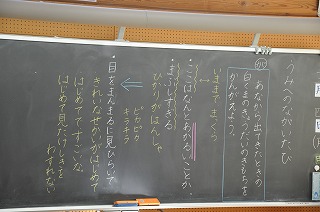 うみへのながいたび
あなから出てきたときの
白くまのきょうだいのきもちを
かんがえよう。
いままで まっくら
・ここはなんとあかるいことか
・まぶしすぎる
ひかりがはんしゃ
ピカピカ
キラキラ
・目をまんまるに見ひらいて
きれいなせかいがはじめて
はじめてですごいな
はじめて見たけしきを
わすれない